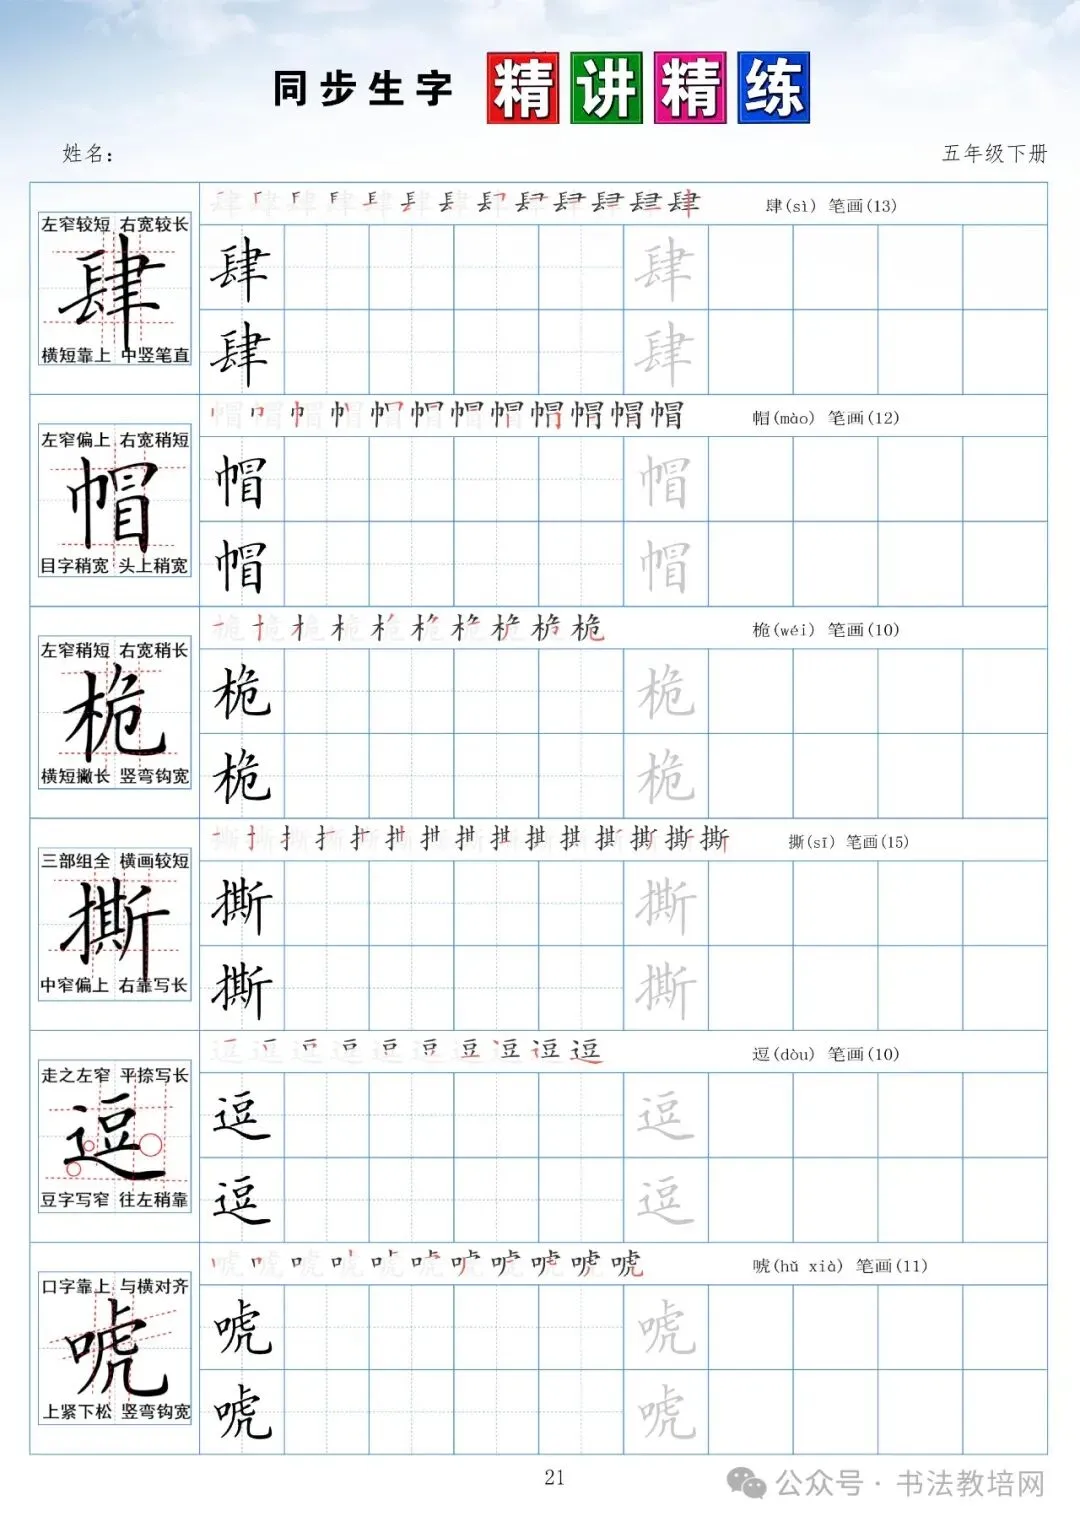 同步生字 精讲精练
姓名:
五年级下册
左窄较短 右宽较长
肆
横短靠上 中竖笔直
肆(sì) 笔画(13)
肆 肆
肆 肆
左窄偏上 右宽稍短
帽
目字稍宽 头上稍宽
帽(mào) 笔画(12)
帽 帽
帽 帽
左窄稍短 右宽稍长
桅
横短撇长 竖弯钩宽
桅(wéi) 笔画(10)
桅 桅
桅 桅
三部组全 横画较短
撕
中窄偏上 右靠写长
撕(sī) 笔画(15)
撕 撕
撕 撕
走之左窄 平捺写长
逗
豆字写窄 往左稍靠
逗(dòu) 笔画(10)
逗 逗
逗 逗
口字靠上 与横对齐
唬
上紧下松 竖弯钩宽
唬(hǔ xià) 笔画(11)
唬 唬
唬 唬
21
公众号·书法教培网